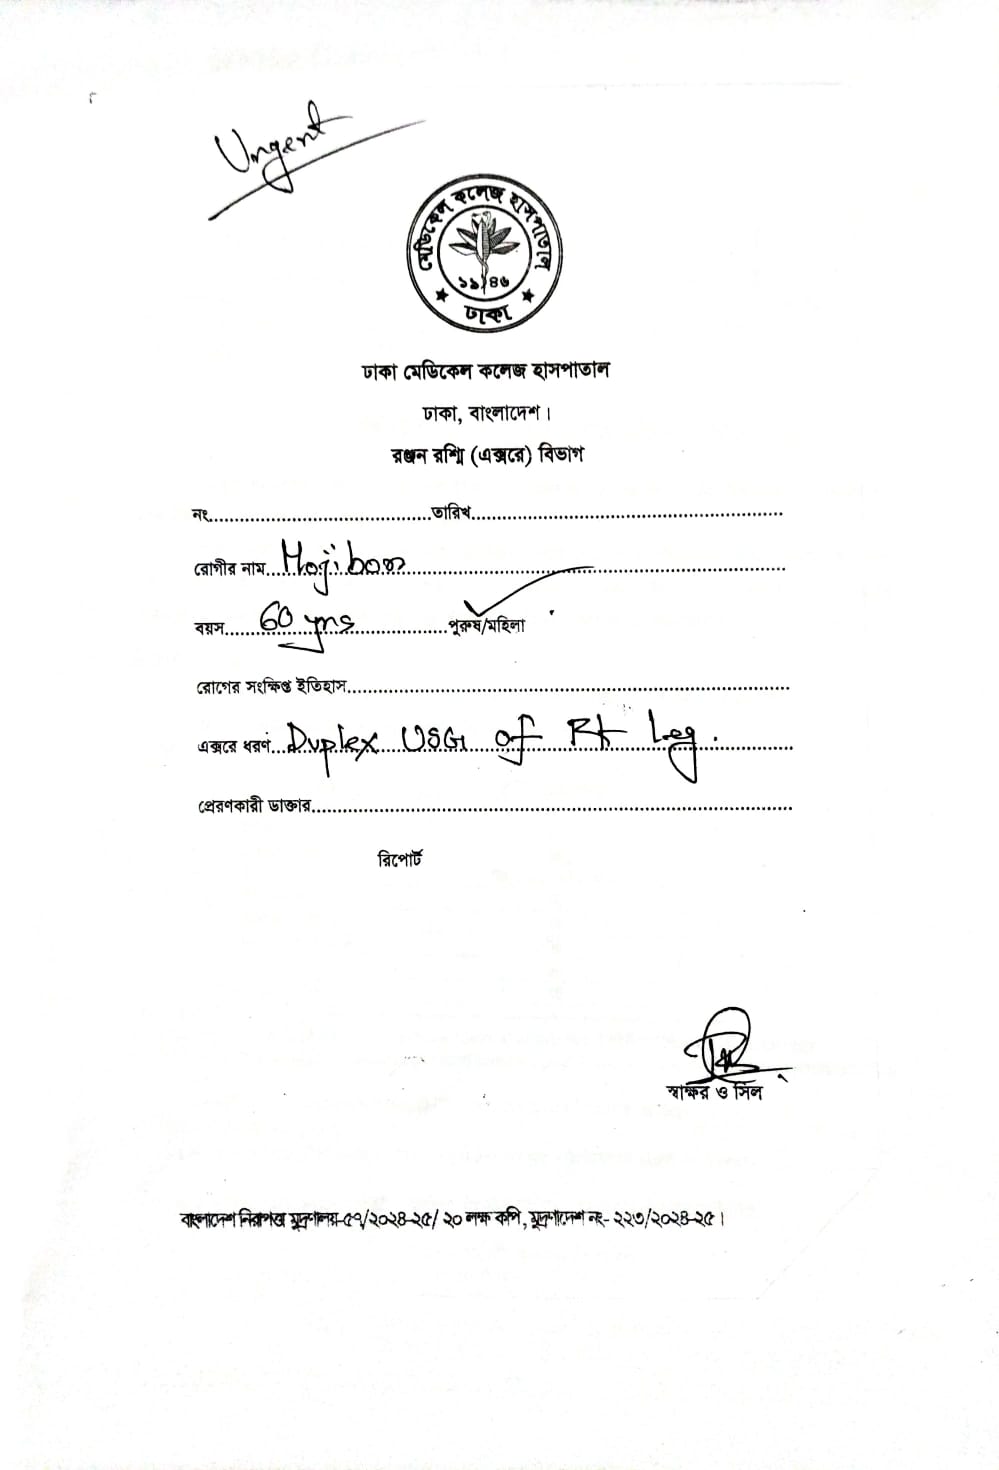 Urgent
মেডিকেল কলেজ হাসপাতাল
১৯৪৬
ঢাকা
ঢাকা মেডিকেল কলেজ হাসপাতাল
ঢাকা, বাংলাদেশ।
রঞ্জন রশ্মি (এক্সরে) বিভাগ
নং................................তারিখ................................
রোগীর নাম....Mojibor
বয়স....60 yrs....পুরুষ/মহিলা
রোগের সংক্ষিপ্ত ইতিহাস................................
এক্সরে ধরণ...Duplex USG of Rt Leg.
প্রেরণকারী ডাক্তার................................
রিপোর্ট
স্বাক্ষর ও সিল
বাংলাদেশ নিরাপত্তা মুদ্রণালয়-৫৭/২০২৪-২৫/ ২০ লক্ষ কপি, মুদ্রণাদেশ নং- ২২৩/২০২৪-২৫।